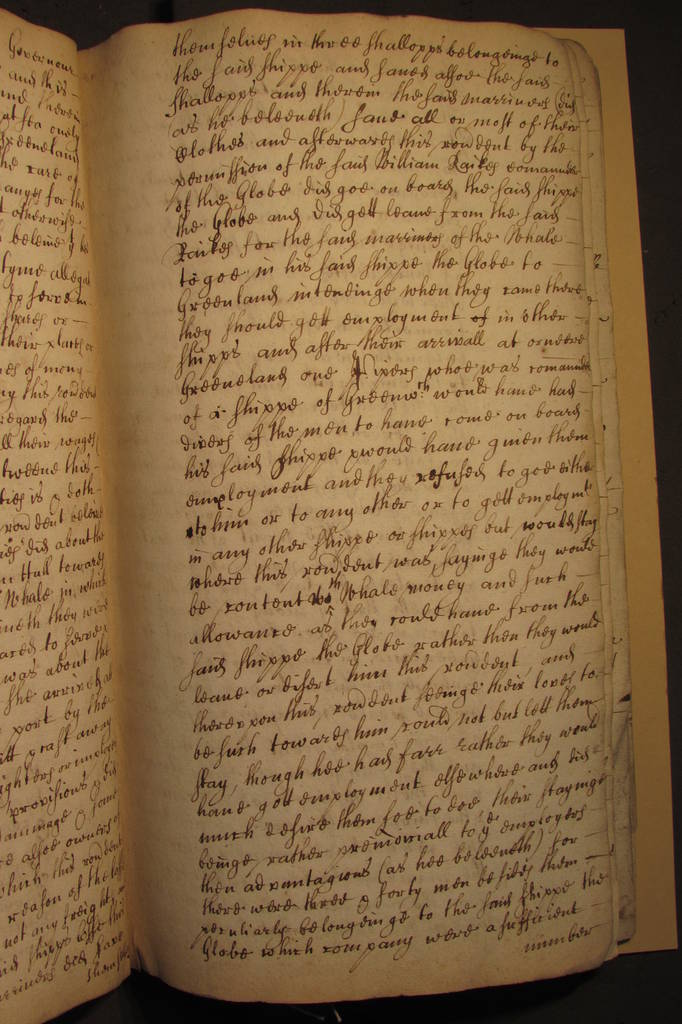 Governour
and this
and therein
at sea onely
Greeneland
the care of
anges for the
t otherwise
beleeve
tyme
to serve in
shares or
their
es of mony
ny this rendent
regard the
ll their wages
tweene this
ties is & doth
rendent beleeve
did about the
Hull towards
Whale in which
meth they were
ared to serve
was about the
she arrived at
port by the
craft
provisions & did
dammage &
alsoe owners of
which this rendent
reason of the
not any freight
said shipps
marriners
themselves in three shallopps belongeinge to
the said shippe and saved alsoe the said
shallopps and therein the said marriners (did
(as he beleeveth) save all or most of their
Clothes and afterwards this rendent by the
permission of the said William Raikes comander
of the Globe did goe on board the said shippe
the Globe and did gett leave from the said
Raikes for the said marriners of the Whale
to goe in his said shippe the Globe to
Greenland intendinge when they came there
they should gett employment of in other
shipps and after their arrivall at or neere
Greeneland one Pipers whoe was comander
of a shippe of Greenwch would have had
divers of the men to have come on board
his said shippe would have given them
employment and they refused to goe either
to him or to any other or to gett employmt
in any other shippe or shippes but would stay
where this rendent was, sayinge they would
be content with Whale money and such
allowance as they could have from the
said shippe the Globe rather then they would
leave or desert him this rendent, and
thereupon this rendent seeinge their loves to
be such towards him could not but lett them
stay, though hee had farr rather they would
have gott employment elsewhere and did
much desire them soe to doe their stayinge
beinge rather prejudiciall to ye employers
then advantagious (as hee beleeveth) for
there were three & forty men besides them
peculiarly belongeinge to the said shippe the
Globe which company were a sufficient
number